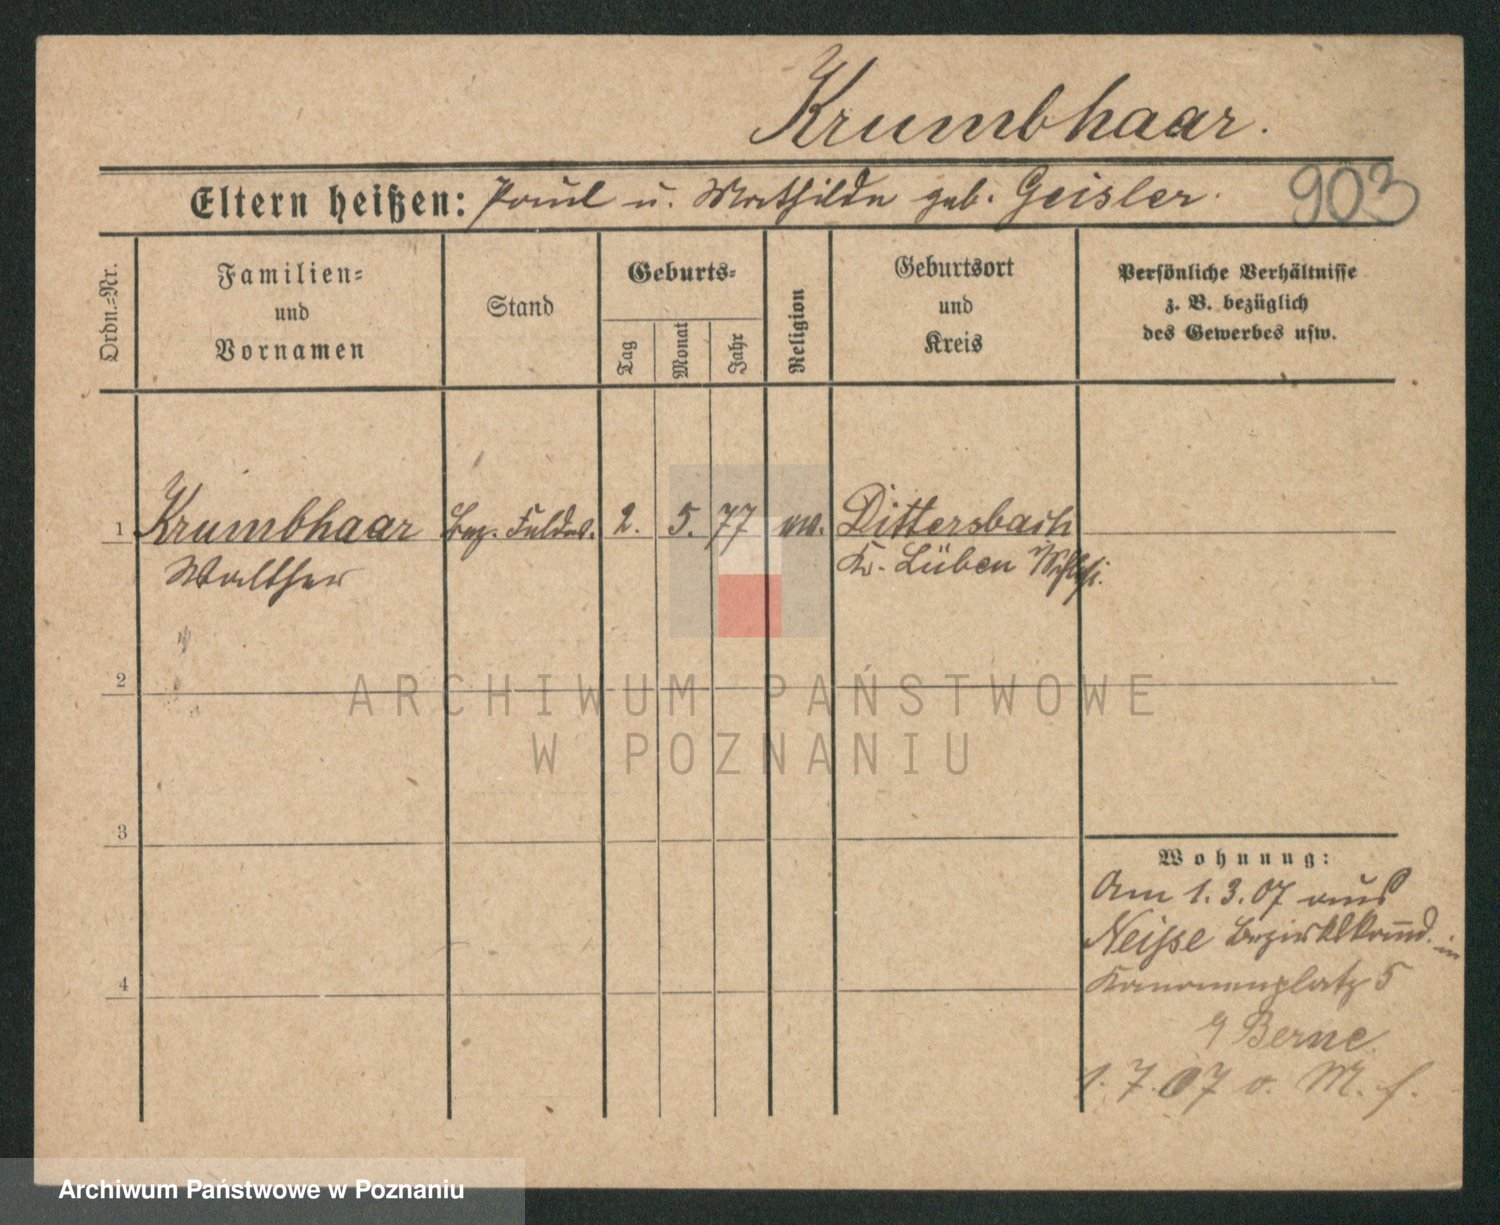 Krumbhaar.
Eltern heißen: Paul u. Mathilde geb. Geisler. 903
Ordn.-Nr.
Familien-
und
Vornamen
Stand
Geburts-
Tag
Monat
Jahr
Religion
Geburtsort
und
Kreis
Persönliche Verhältnisse
z. B. bezüglich
des Gewerbes usw.
1 Krumbhaar Bez. Feldw. 2. 5. 77 ev. Dittersbach
Walther Kr. Lüben Schlesi.
2
3
4
Wohnung:
Am 1.3.07 aus
Neisse Bezirkskomd. in
Kanonenplatz 5
Berne
1.7.07 v. M. f.
ARCHIWUM PAŃSTWOWE
W POZNANIU
Archiwum Państwowe w Poznaniu